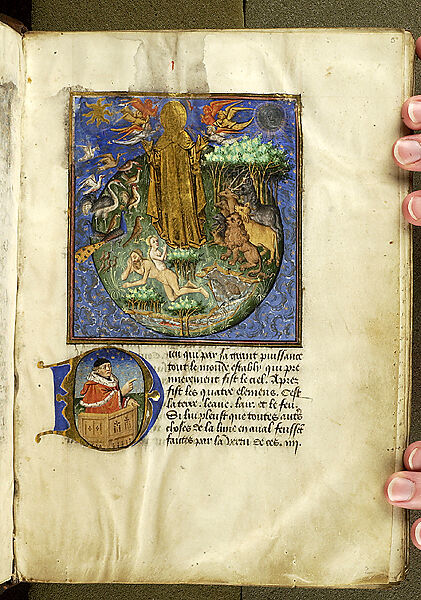 ieu qui par sa grant puissance
tout le monde estably qui pre
mierement fist le ciel. Aprez
fist les quatre elemens. Cest
la terre. leaue. lair. et le feu.
Si lui pleust que toutes autres
choses de la lune en aual feussent
faittes par la vertu de ces. iiii.